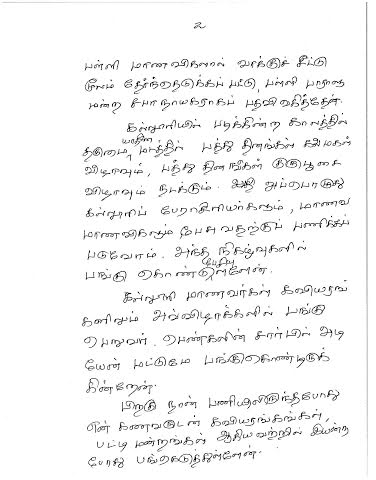 2
பள்ளி மாணவிகளால் வாக்குச் சீட்டு
மூலம் தேர்ந்தெடுக்கப் பட்டு, பள்ளி பாராளு
மன்ற சபாநாயகராகப் பதவி வகித்தேன்.
கல்லூரியில் படிக்கின்ற காலத்தில்
தருமை ஆதீன மடத்தில் பத்து தினங்கள்
விழாவும், பத்து தினங்கள் குருபூசை
விழாவும் நடக்கும். அப்பொழுது
கல்லூரிப் பேராசிரியர்களும், மாணவ
மாணவிகளும் பேசுவதற்குப் பணிக்கப்
படுவோம். அந்த நிகழ்வுகளில்
பங்கு கொண்டு பேசியுள்ளேன்.
கல்லூரி மாணவர்கள் கவியரங்
களிலும் அவ்விழாக்களில் பங்கு
பெறுவர். பெண்களின் சார்பில் அடி
யேன் மட்டுமே பங்குகொண்டிருக்
கின்றேன்.
பிறகு நான் பணியிலிருந்தபோது
என் கணவருடன் கவியரங்கங்கள்,
பட்டி மன்றங்கள் ஆகியவற்றில் இயன்ற
போது பங்கெடுத்துள்ளேன்.